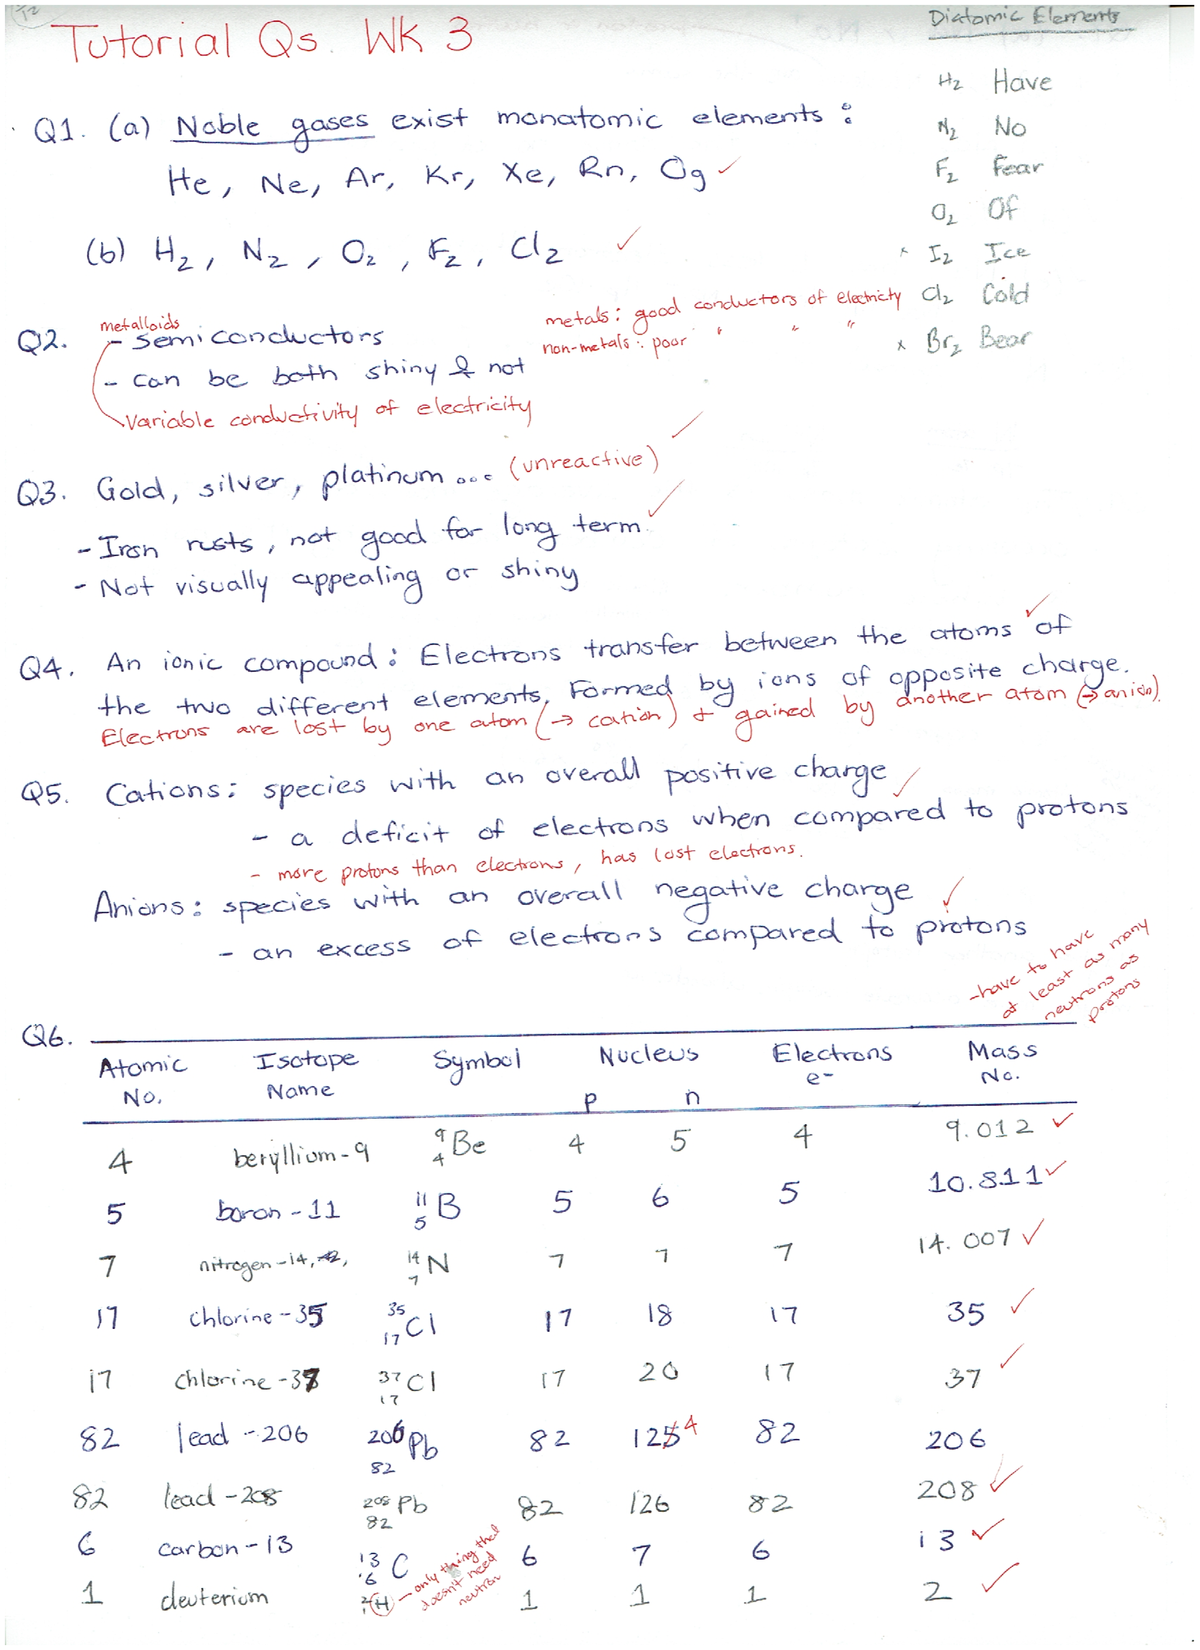 T2
Tutorial Qs. Wk 3
Diatomic Elements
H2 Have
N2 No
F2 Fear
O2 Of
x I2 Ice
Cl2 Cold
x Br2 Bear
Q1. (a) Noble gases exist monatomic elements :
He, Ne, Ar, Kr, Xe, Rn, Og ✓
(b) H2, N2, O2, F2, Cl2 ✓
Q2. metalloids
- semiconductors
- can be both shiny & not
Variable conductivity of electricity
metals: good conductors of electricty
non-metals: poor " " "
✓
Q3. Gold, silver, platinum ... (unreactive)
- Iron rusts, not good for long term. ✓
- Not visually appealing or shiny
Q4. An ionic compound: Electrons transfer between the atoms of ✓
the two different elements. Formed by ions of opposite charge.
Electrons are lost by one atom (→ cation) + gained by another atom (→ anion).
Q5. Cations: species with an overall positive charge ✓
- a deficit of electrons when compared to protons
- more protons than electrons, has lost electrons.
Anions: species with an overall negative charge ✓
- an excess of electrons compared to protons
-have to have
at least as many
neutrons as
protons
Q6.
Atomic No. Isotope Name Symbol Nucleus Electrons e- Mass No.
p n
4 beryllium-9 9 4 Be 4 5 4 9.012 ✓
5 boron-11 11 5 B 5 6 5 10.811 ✓
7 nitrogen-14, 7 14 N 7 7 7 14.007 ✓
17 chlorine-35 35 17 Cl 17 18 17 35 ✓
17 chlorine-37 37 17 Cl 17 20 17 37 ✓
82 lead-206 206 82 Pb 82 1254 82 206
82 lead-208 208 82 Pb 82 126 82 208 ✓
6 carbon-13 13 6 C 6 7 6 13 ✓
1 deuterium 2 1 H 1 1 1 2 ✓
- only thing that
doesn't need
neutron